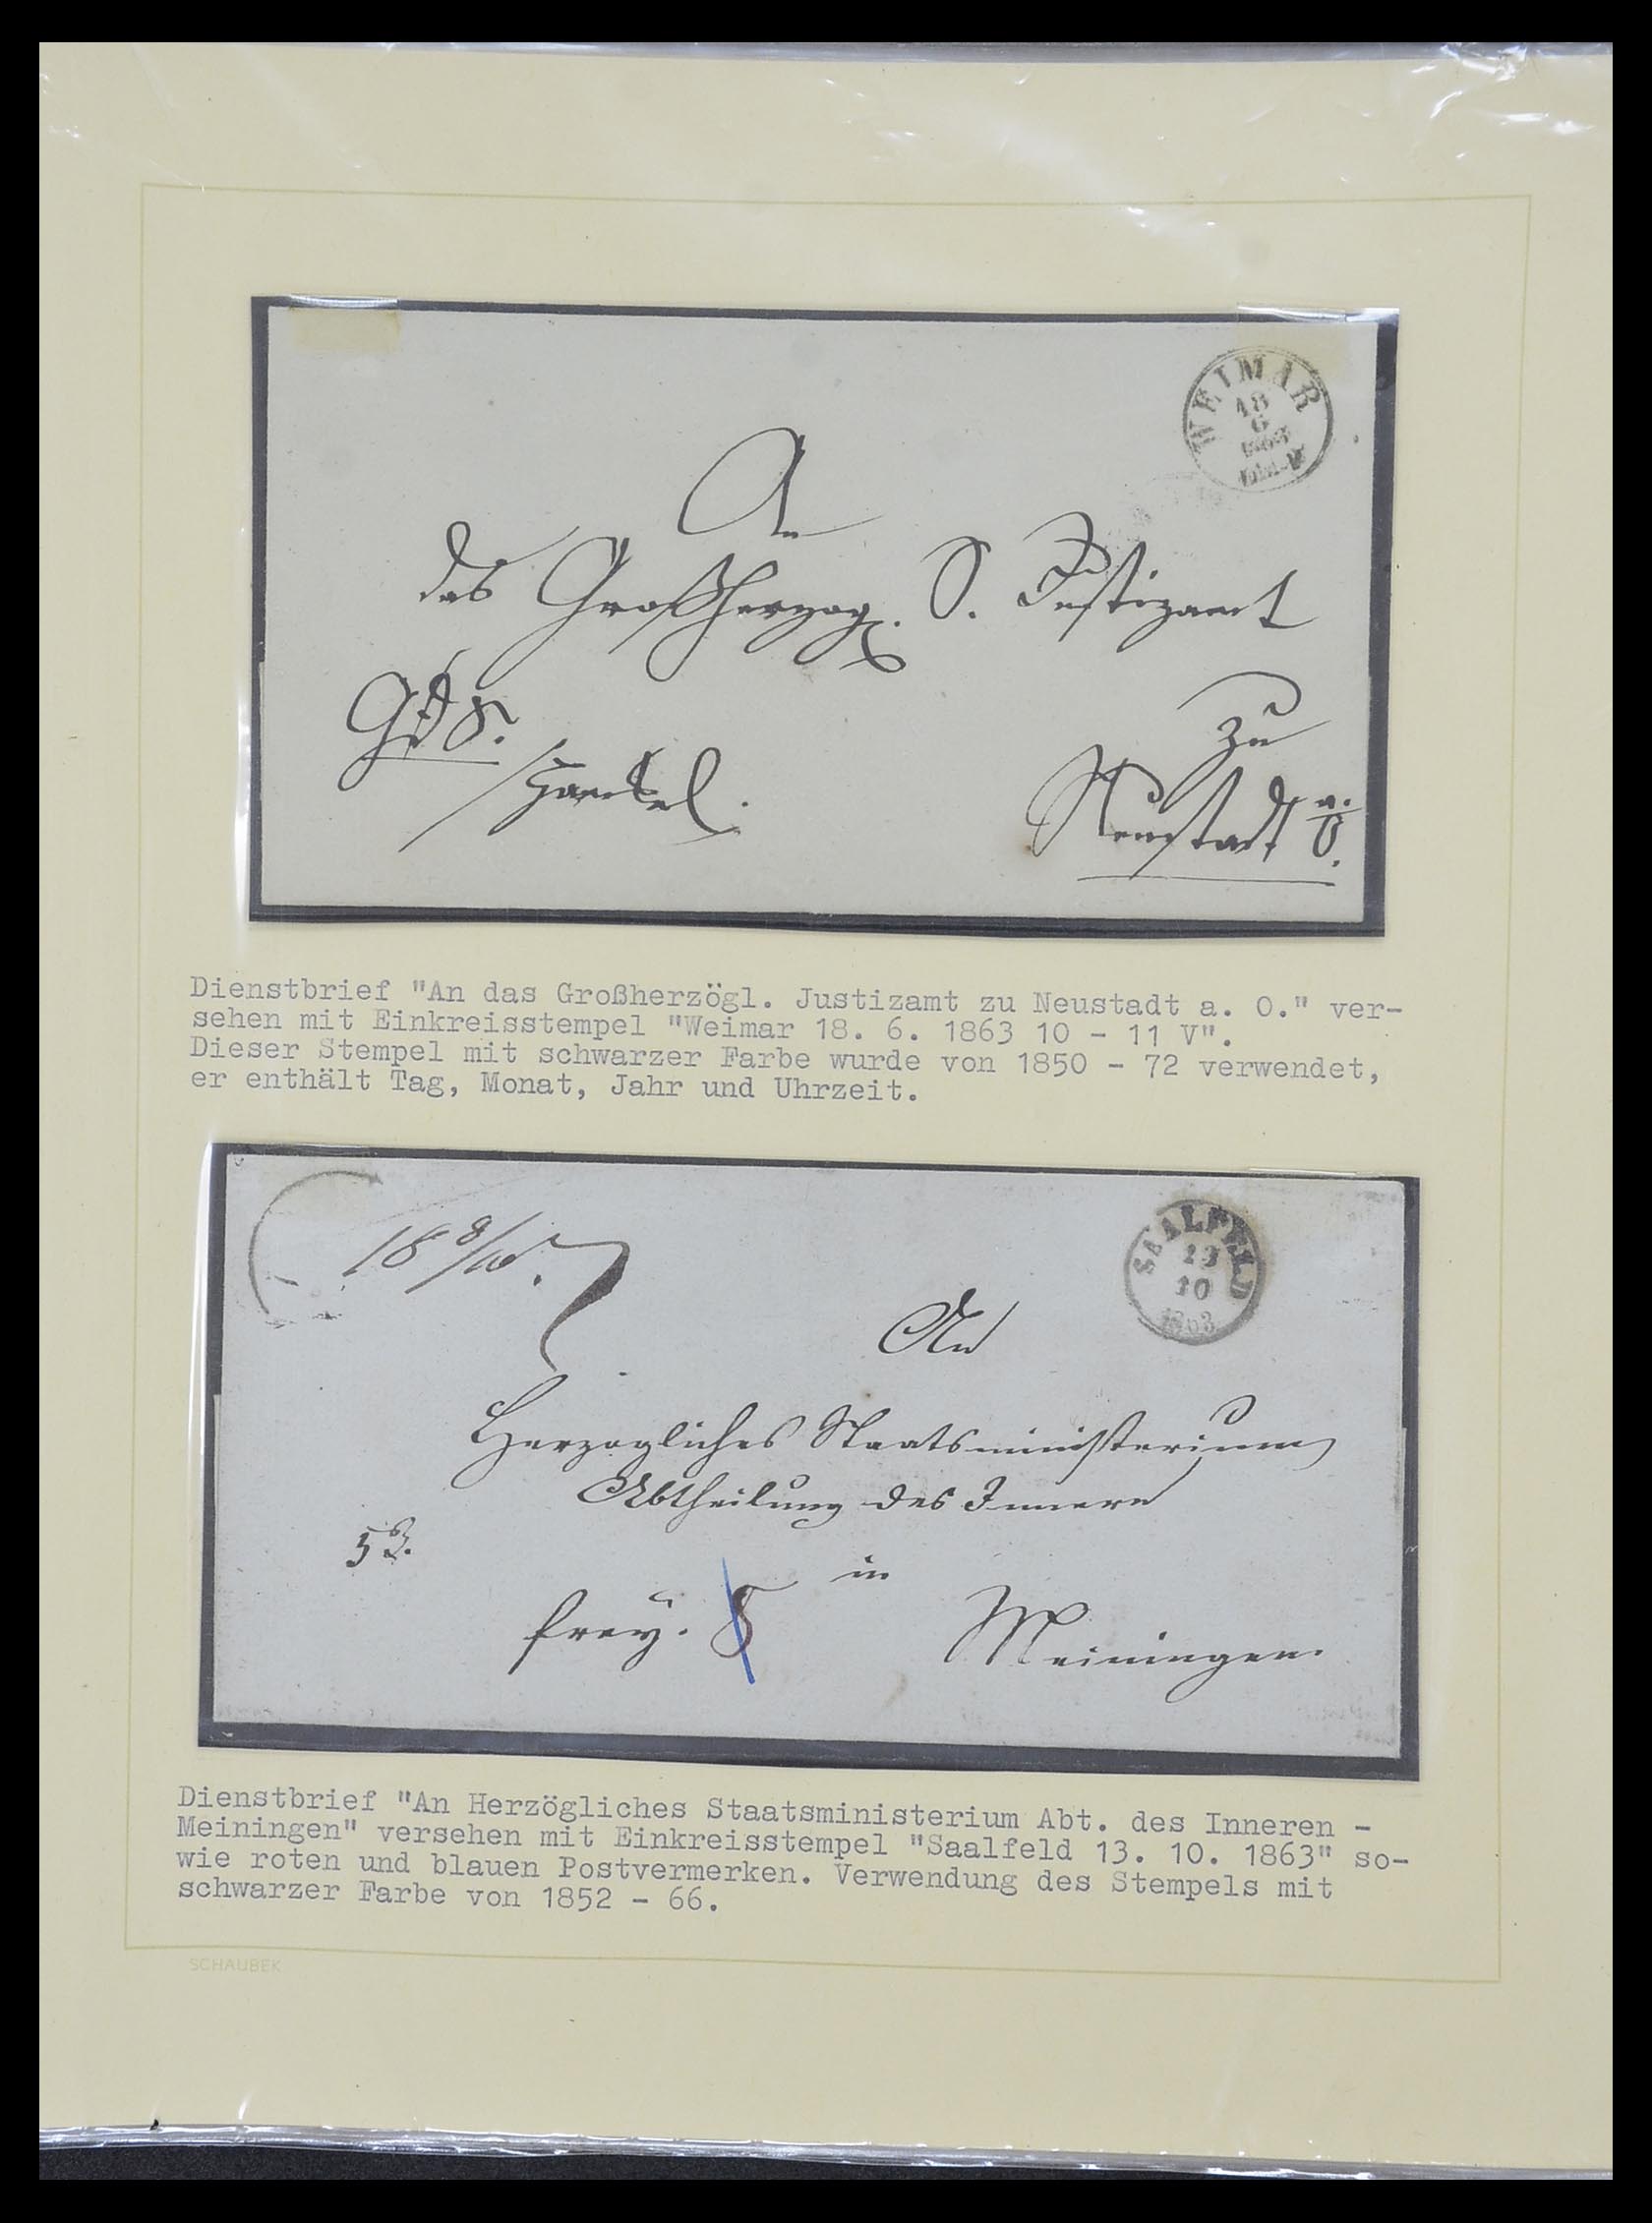 WEIMAR
18
6
1863
An
das Großherzog. S. Justizamt
zu
Neustadt a./O.
Dienstbrief "An das Großherzögl. Justizamt zu Neustadt a. O." ver-
sehen mit Einkreisstempel "Weimar 18. 6. 1863 10 - 11 V".
Dieser Stempel mit schwarzer Farbe wurde von 1850 - 72 verwendet,
er enthält Tag, Monat, Jahr und Uhrzeit.
SAALFELD
13
10
1863
18 8/10.
An
Herzogliches Staatsministerium
Abtheilung des Innern
in
frey.
Meiningen.
Dienstbrief "An Herzögliches Staatsministerium Abt. des Inneren -
Meiningen" versehen mit Einkreisstempel "Saalfeld 13. 10. 1863" so-
wie roten und blauen Postvermerken. Verwendung des Stempels mit
schwarzer Farbe von 1852 - 66.
SCHAUBEK